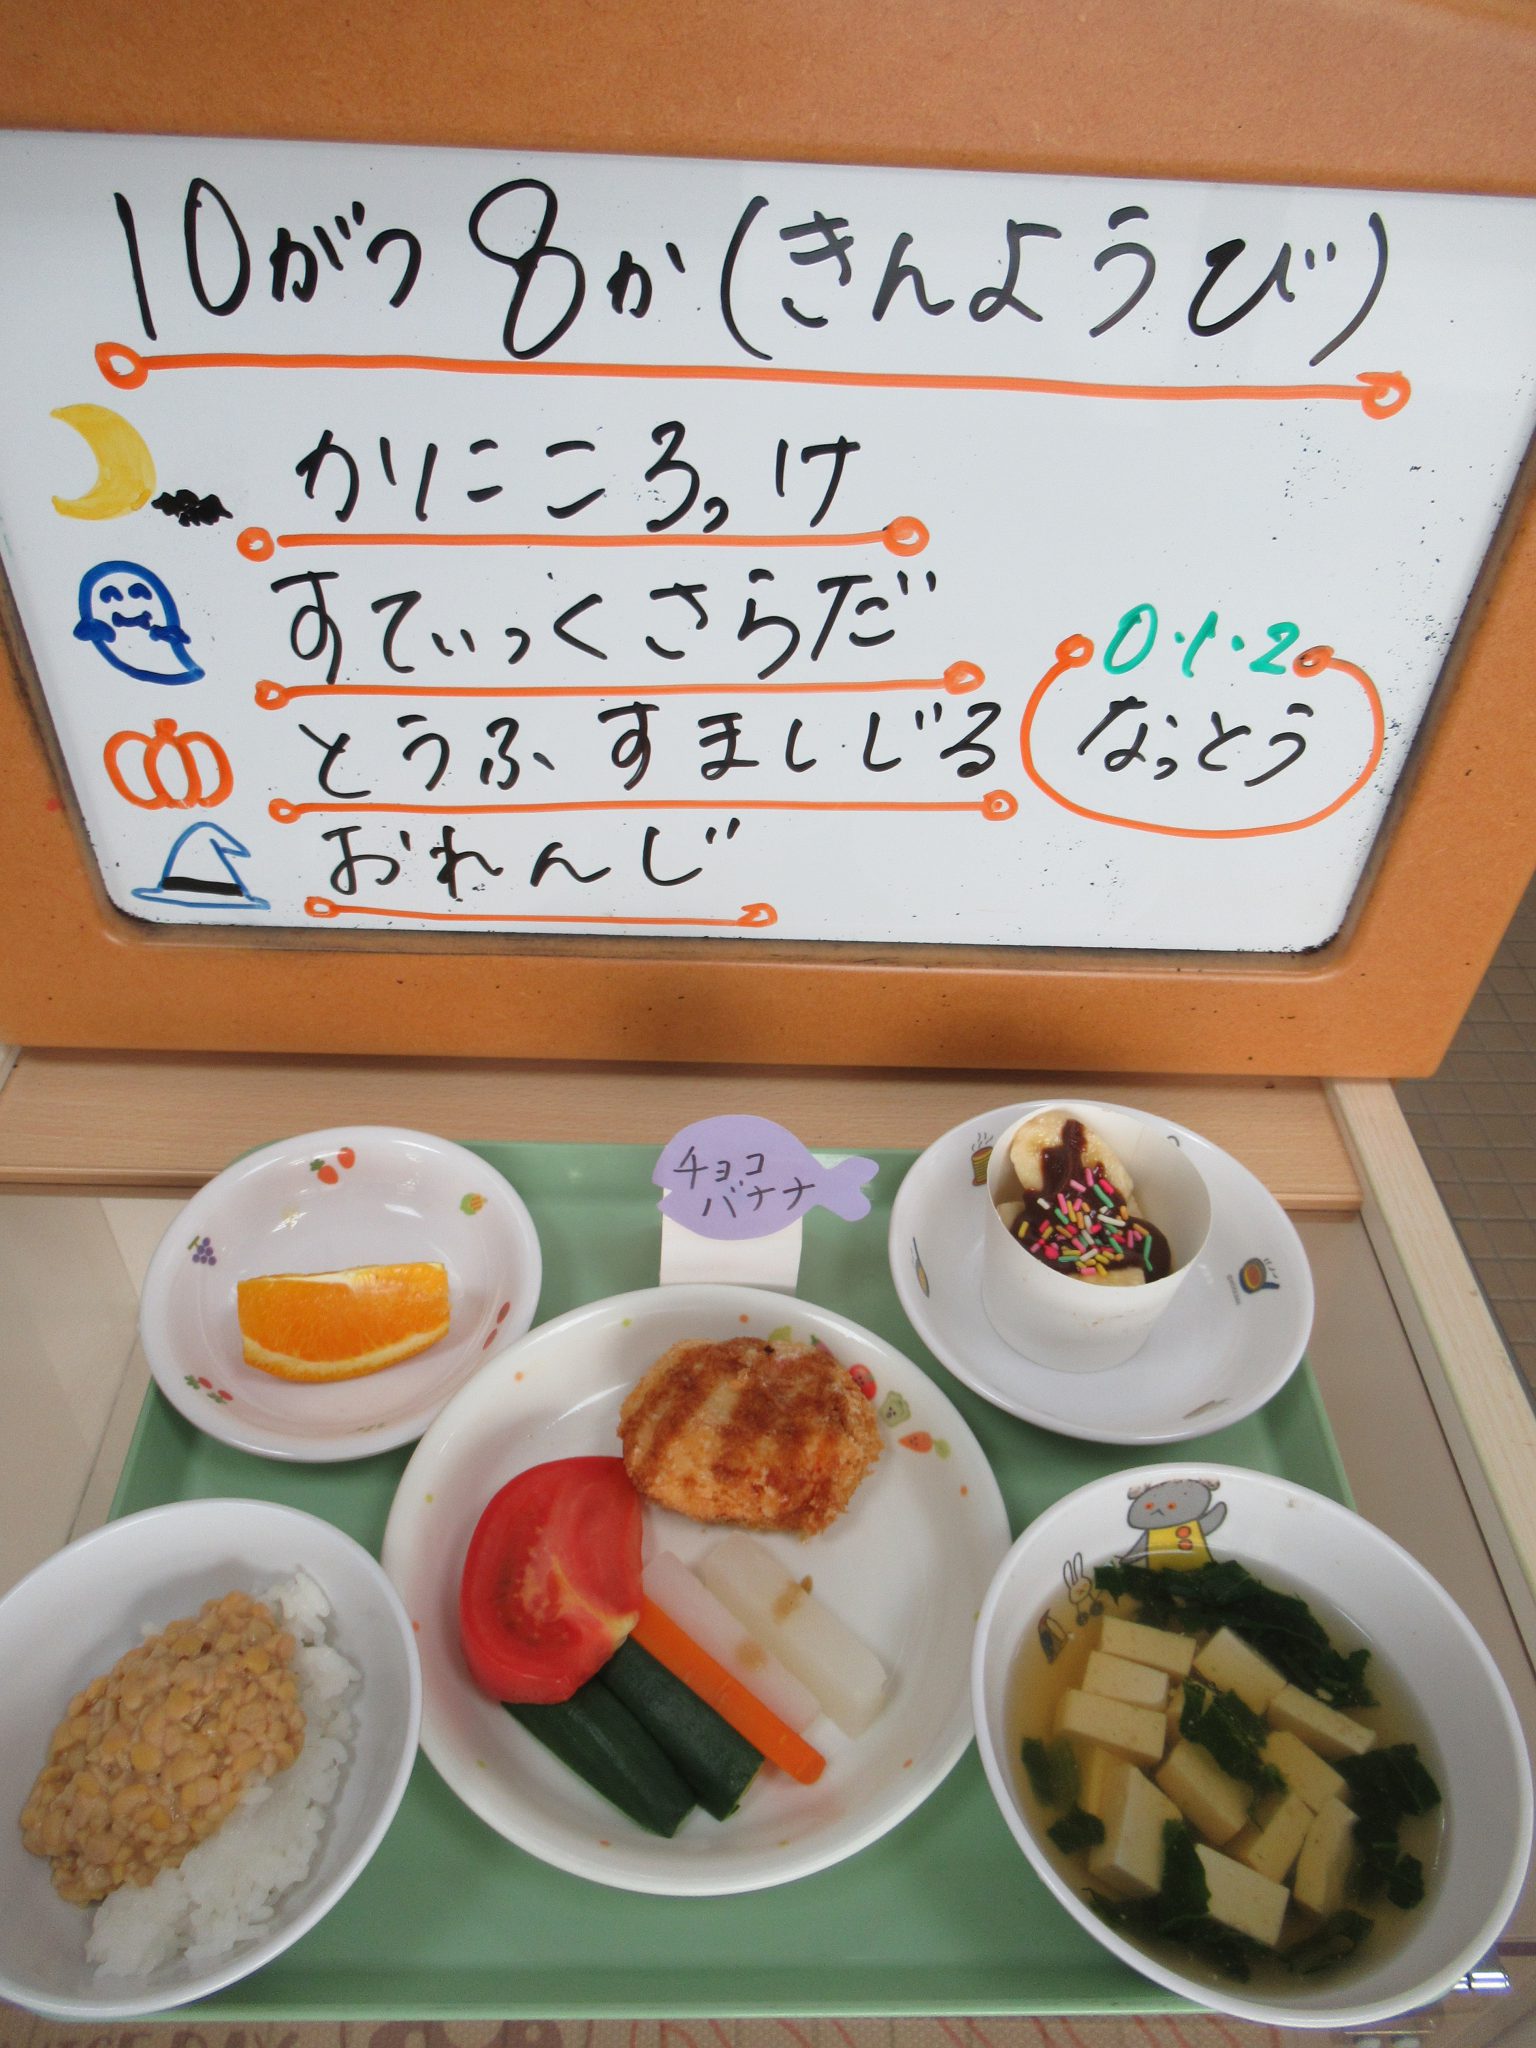 10がつ8か(きんようび)
かにころっけ
すてぃっくさらだ
とうふすましじる
おれんじ
0・1・2
なっとう
チョコ
バナナ